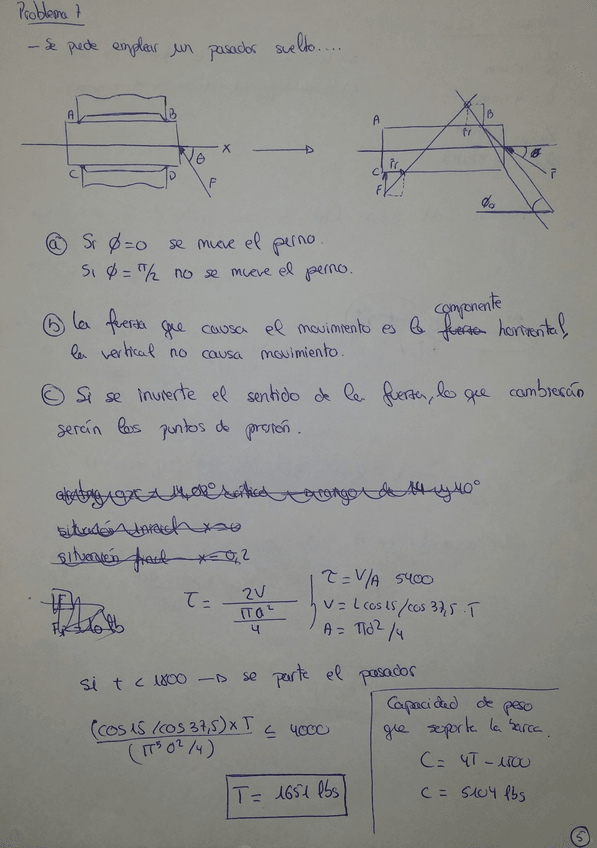 Problema 7
- Se puede emplear un pasador suelto....
A B
C D
X
θ
F
A B
C
Fr
Fr
F
θ
F
ϕo
ⓐ Si ϕ=0 se mueve el perno.
Si ϕ=π/2 no se mueve el perno.
ⓑ La fuerza que causa el movimiento es la fuerza componente horizontal,
la vertical no causa movimiento.
ⓒ Si se invierte el sentido de la fuerza, lo que cambiarán
serán los puntos de presión.
situación inicial x=0
situación final x=0,2
τ = 2V / (πd²/4)
τ = V/A 5400
V = L cos15/cos37,5 · T
A = πd²/4
si t < 1800 → se parte el pasador
(cos15/cos37,5)×T / (π⁵d²/4) ≤ 4000
T = 1651 lbs
Capacidad de peso
que soporta la barca.
C = 4T - 1500
C = 5104 lbs
5